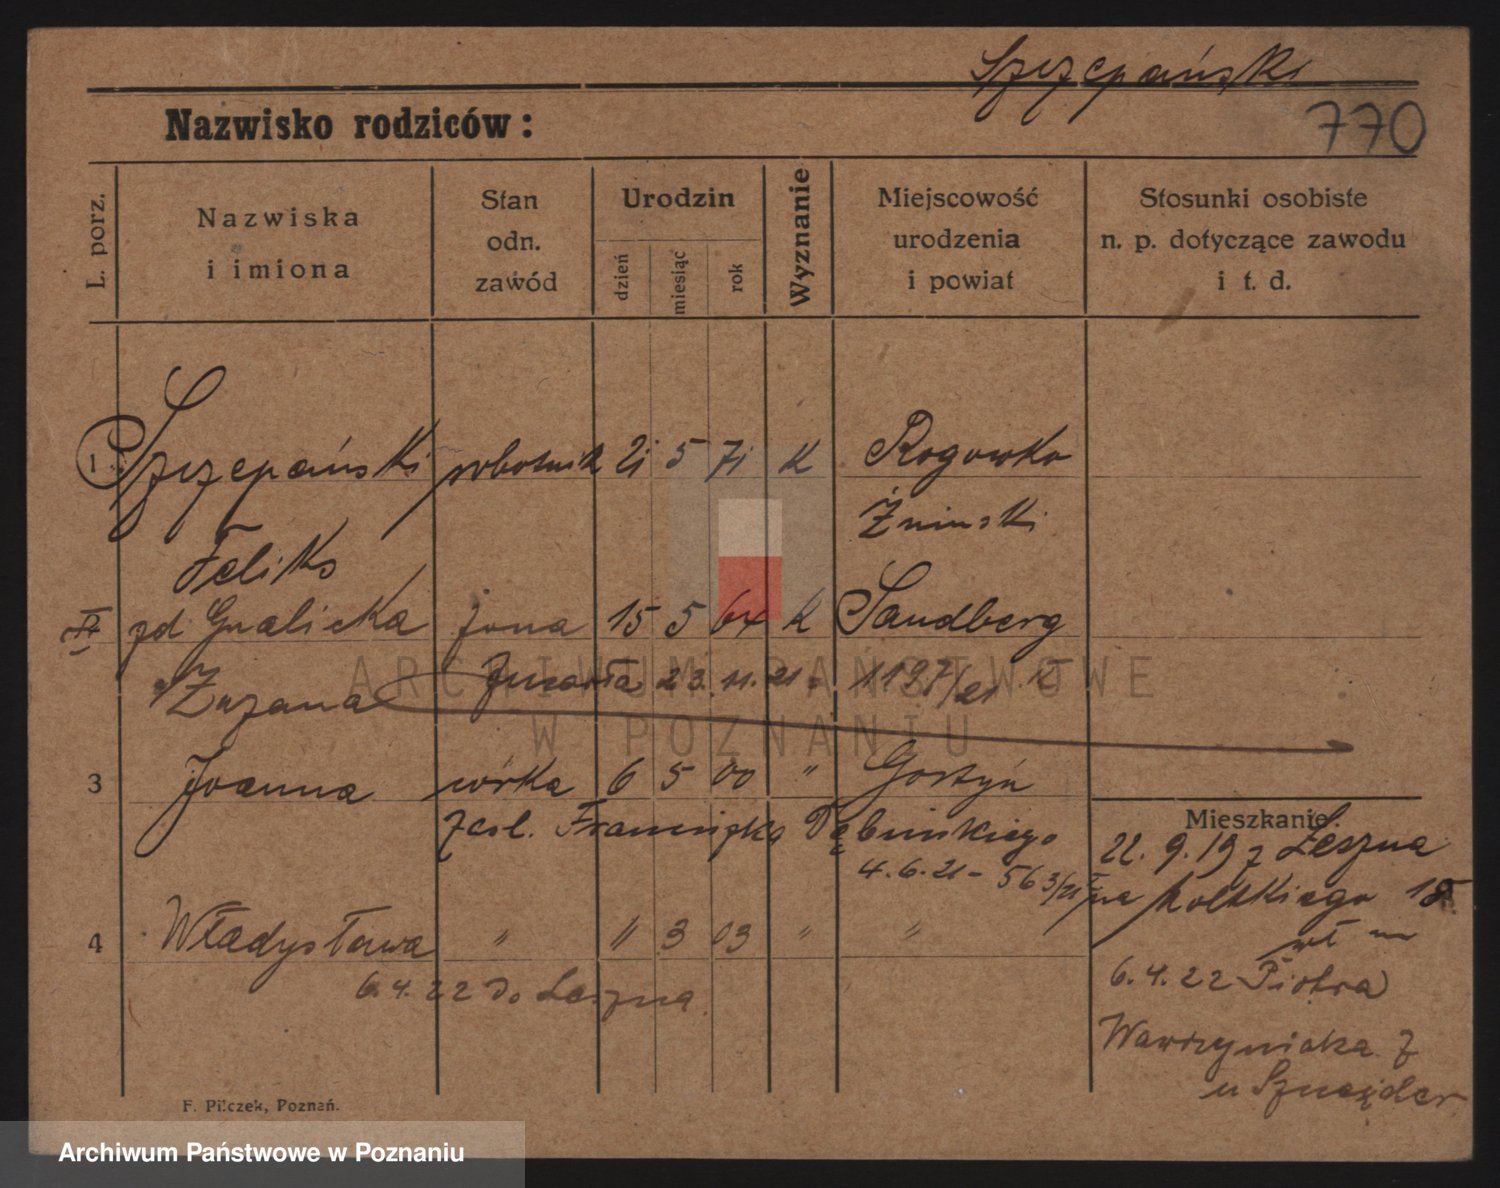 Szczepański
Nazwisko rodziców:
770
L. porz.
Nazwiska
i imiona
Stan
odn.
zawód
Urodzin
dzień
miesiąc
rok
Wyznanie
Miejscowość
urodzenia
i powiat
Stosunki osobiste
n. p. dotyczące zawodu
i t. d.
1. Szczepański robotnik 21 5 71 K Rogowko
Feliks Żninski
II zd Gralicka żona 15 5 64 K Sandberg
Zuzana Zmarła 23.11.21. 1197/21
3 Joanna córka 6 5 00 " Gostyń
zasl. Franciszka 4.6.21 - 563/21
4 Władysława " " 3 03 " "
6.4.22 do Leszna
Mieszkanie
22.9.19 z Leszna
na
6.4.22 Piotra
Wawrzyniaka 7
u Sznajder
F. Pilczek, Poznań.
ARCHIWUM PAŃSTWOWE
W POZNANIU
Archiwum Państwowe w Poznaniu